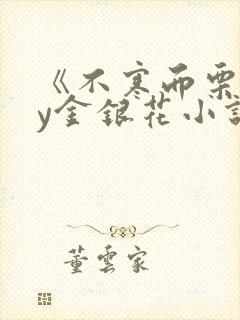 《不寒而栗
y金银花小说
董云家